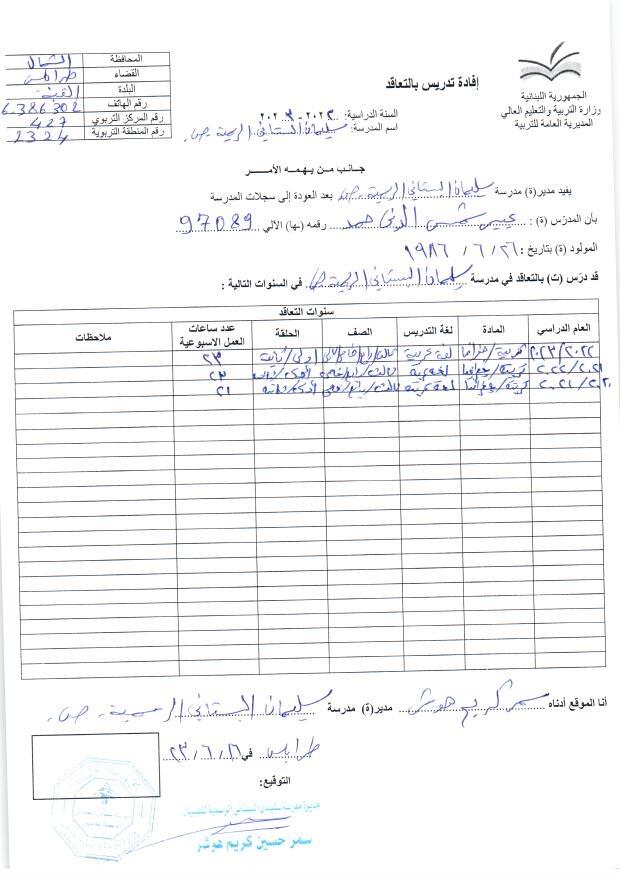 المحافظة الشمال
القضاء طرابلس
البلدة القبة
رقم الهاتف 6.386302
رقم المركز التربوي 427
رقم المنطقة التربوية 2324
الجمهورية اللبنانية
وزارة التربية والتعليم العالي
المديرية العامة للتربية
إفادة تدريس بالتعاقد
السنة الدراسية: ٢٠٢٢ - ٢٠٢٣
اسم المدرسة: سليمان البستاني الرسمية .ص.
جانب من يهمه الأمر
يفيد مدير(ة) مدرسة سليمان البستاني الرسمية .ص. بعد العودة إلى سجلات المدرسة
بأن المدرّس (ة) : عبير شمس الدين حمد رقمه (ها) الآلي 97089
المولود (ة) بتاريخ : ٢٦ / ٦ / ١٩٨٦
قد درّس (ت) بالتعاقد في مدرسة سليمان البستاني الرسمية ص في السنوات التالية :
سنوات التعاقد
العام الدراسي المادة لغة التدريس الصف الحلقة عدد ساعات العمل الاسبوعية ملاحظات
٢٠٢٣/٢٠٢٢ لغة عربية اولى/ثانية ٢٣
٢٠٢٢/٢٠٢١ لغة عربية ٢٣
٢٠٢١/٢٠٢٠ لغة عربية ٢١
أنا الموقع أدناه سمر كريم هوشر مدير(ة) مدرسة سليمان البستاني الرسمية .ص.
طرابلس في ٢٦/٦/٢٣
التوقيع:
مديرة مدرسة سليمان البستاني الرسمية للصبيان
سمر حسين كريم هوشر